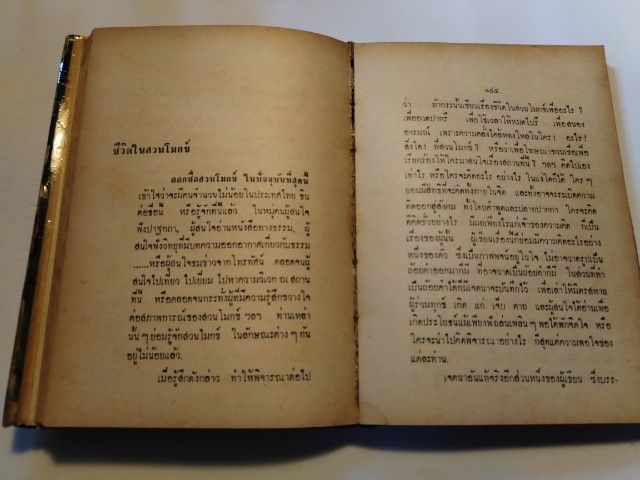 ชีวิตในสวนโมกข์
ออกชื่อสวนโมกข์ ในปัจจุบันที่สุดนี้
เข้าใจว่าจะมีคนจำนวนไม่น้อยในประเทศไทย ชิน
ต่อชื่อนี้ หรือรู้จักที่นี้แล้ว ในหมู่คนผู้สนใจ
ฟังปาฐกถา, ผู้สนใจอ่านหนังสือทางธรรม, ผู้
สนใจฟังวิทยุที่มีบทความออกอากาศเกี่ยวกับธรรม
......หรือผู้สนใจชมข่าวจากโทรทัศน์ ตลอดจนผู้
สนใจไปเที่ยว ไปเยี่ยม ไปหาความวิเวก ณ สถาน
ที่นี้ หรือตลอดจนกระทั่งผู้ที่มีความรู้สึกขวางใจ
ต่อสภาพการณ์ของสวนโมกข์ ฯลฯ ท่านเหล่า
นั้น ๆ ย่อมรู้จักสวนโมกข์ ในลักษณะต่าง ๆ กัน
อยู่ไม่น้อยแล้ว.
เมื่อรู้สึกดังกล่าว ทำให้พิจารณาต่อไป
๑๙๕
ว่า ถ้ากระนั้นเขียนเรื่องชีวิตในสวนโมกข์เพื่ออะไร ?
เพื่ออวดปากรึ เพื่อใช้เวลาให้หมดไปรึ เพื่อสนอง
อารมณ์ เพราะความคลั่งไคล้หลงใหลในใคร ! อะไร !
สิ่งใด ! ที่สวนโมกข์ ? หรือว่าเพื่อโฆษณาชวนเชื่อเพื่อ
เรียกร้องให้ใครมาสนใจเรื่องสถานที่นี้ ? ฯลฯ คิดไปเอง
เท่าไร หรือ ใครจะคิดอะไร อย่างไร ในแง่ใดก็ได้ ใคร ๆ
ย่อมมีสิทธิที่จะคิดทั้งภายในจิต และทั้งอาจจะระเบิดความ
คิดออกสู่สังคม ทั้งโดยคำพูดและปลายปากกา ใครจะคิด
คิดชั่วอย่างไร มีผลเพียงไรแก่เจ้าของความคิด ก็เป็น
เรื่องของผู้นั้น ผู้เขียนเรื่องนี้ก็ย่อมมีความคิดอะไรอย่าง
หนึ่งของตัว ซึ่งเป็นภาพพจน์อยู่ในใจ ไม่อาจวาดรูปเป็น
ถ้อยคำออกมาก็มี ที่อาจวาดเป็นถ้อยคำก็มี ในส่วนที่ทำ
เป็นถ้อยคำได้ก็มีเจตนาจะบันทึกไว้ เพื่อเล่าให้มิตรสหาย
ผู้ร่วมทุกข์ เกิด แก่ เจ็บ ตาย และผู้สนใจได้อ่านเพื่อ
เกิดประโยชน์แม้เพียงพึ่งเล่นเพลิน ๆ พอได้พักจิตใจ หรือ
ใครจะนำไปคิดพิจารณา อย่างไร ก็สุดแต่ความพอใจของ
แต่ละท่าน.
เจตนาอันแท้จริงอีกส่วนหนึ่งของผู้เขียน ซึ่งบรร-